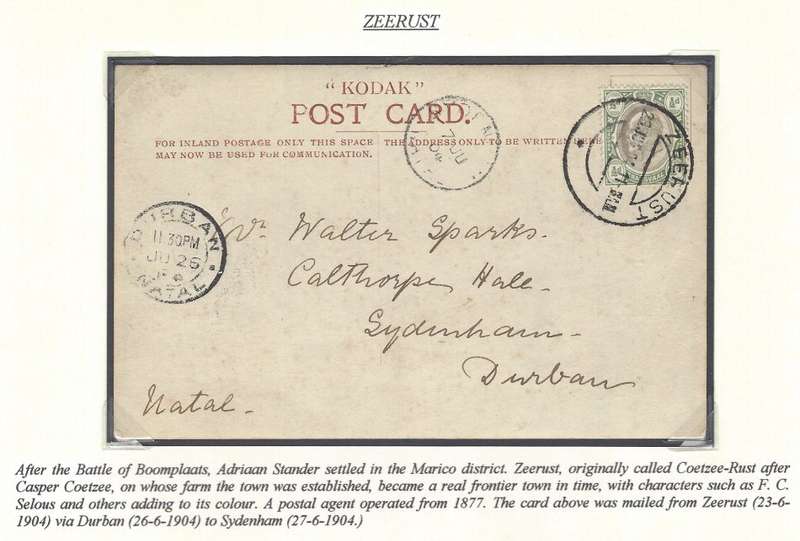 ZEERUST
"KODAK"
POST CARD.
FOR INLAND POSTAGE ONLY THIS SPACE
MAY NOW BE USED FOR COMMUNICATION.
THE ADDRESS ONLY TO BE WRITTEN HERE
½d
ZEERUST
DURBAN
11.30PM
JU 26
NATAL
Mr Walter Sparks.
Calthorpe Hall.
Sydenham.
Durban
Natal.
After the Battle of Boomplaats, Adriaan Stander settled in the Marico district. Zeerust, originally called Coetzee-Rust after
Casper Coetzee, on whose farm the town was established, became a real frontier town in time, with characters such as F. C.
Selous and others adding to its colour. A postal agent operated from 1877. The card above was mailed from Zeerust (23-6-
1904) via Durban (26-6-1904) to Sydenham (27-6-1904.)